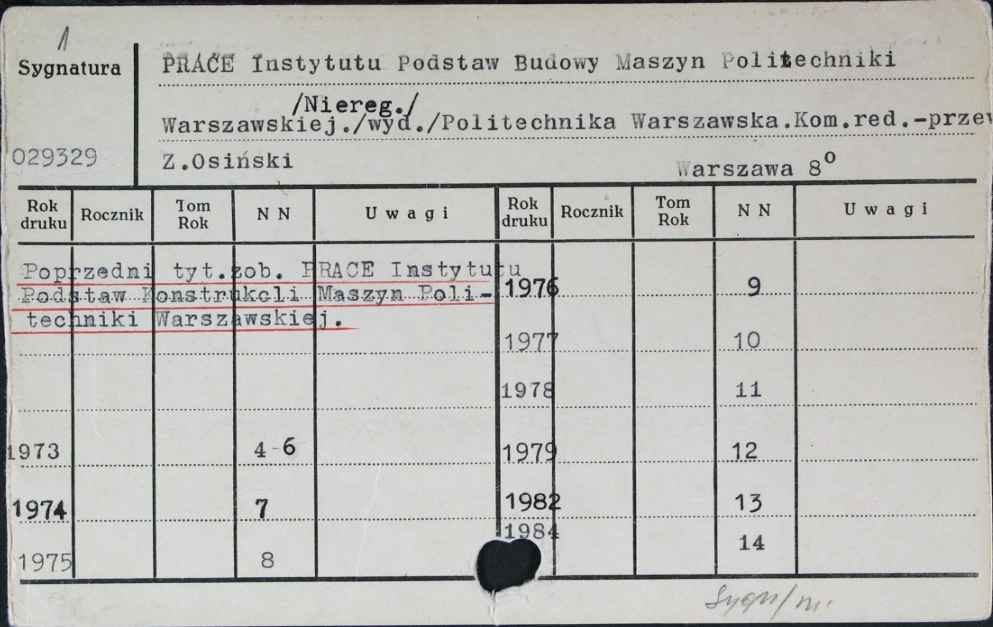 1
Sygnatura
PRACE Instytutu Podstaw Budowy Maszyn Politechniki
/Niereg./
Warszawskiej./wyd./Politechnika Warszawska.Kom.red.-przew
029329
Z.Osiński
Warszawa 8⁰
Rok druku Rocznik Tom Rok N N Uwagi Rok druku Rocznik Tom Rok N N Uwagi
Poprzedni tyt.zob. PRACE Instytutu
Podstaw Konstrukcli Maszyn Poli-
techniki Warszawskiej.
1976 9
1977 10
1978 11
1973 4-6 1979 12
1974 7 1982 13
1975 8 1984 14